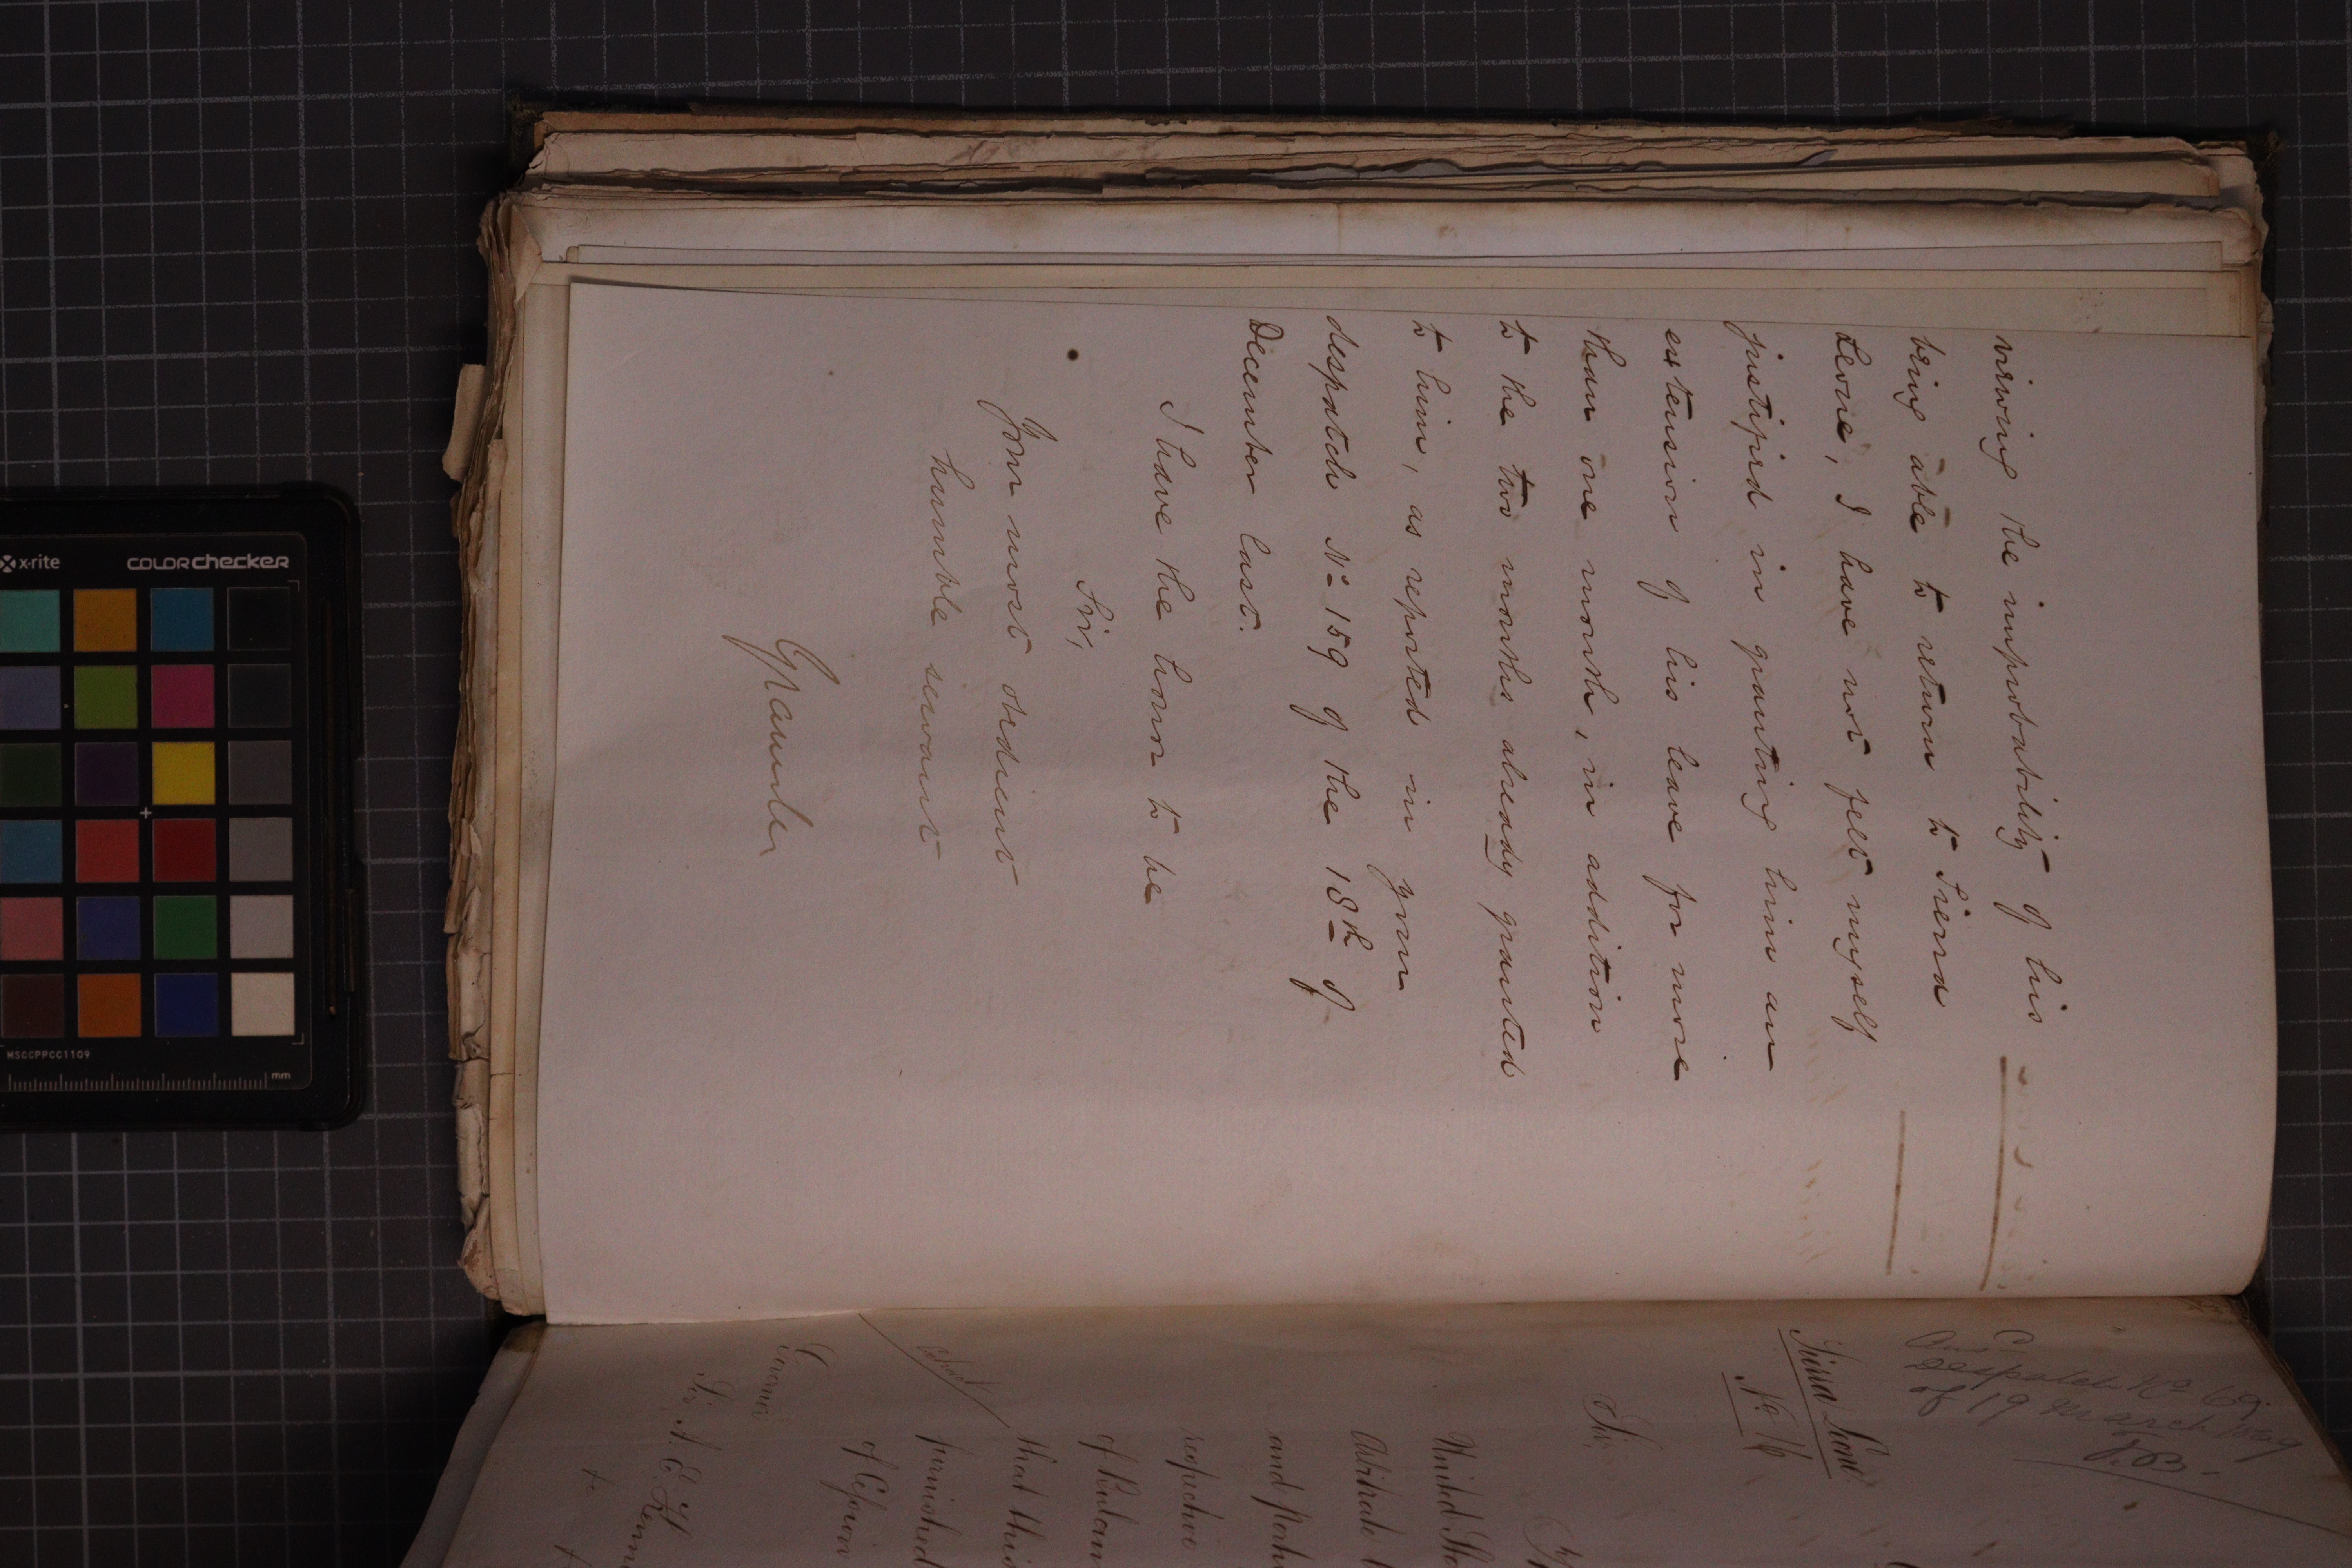 viewing the improbability of his
being able to return to Sierra
Leone, I have not felt myself
justified in granting him an
extension of his leave for more
than one month, in addition
to the two months already granted
to him, as reported in your
despatch No 159 of the 18th of
December last.
I have the honor to be
Sir,
Your most obedient
humble servant
Granville
Despatch No 69.
of 19 March 1869
Sierra Leone
No 16
Sir
United Sta
Abstracts
and
respective
of
that this
furnished
of Cession
Governor
Sir A. E. Kenn
x-rite
colorchecker
MSCCPPCC1109
mm